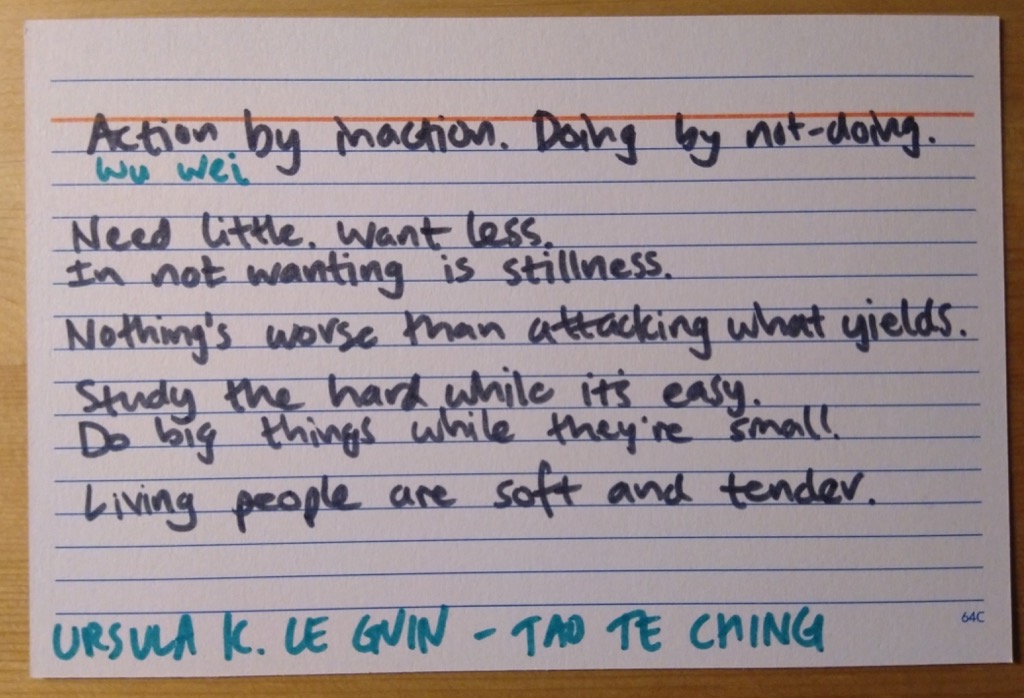 Action by inaction. Doing by not-doing.
wu wei
Need little. want less.
In not wanting is stillness.
Nothing's worse than attacking what yields.
Study the hard while it's easy.
Do big things while they're small.
Living people are soft and tender.
URSULA K. LE GUIN - TAO TE CHING
64C